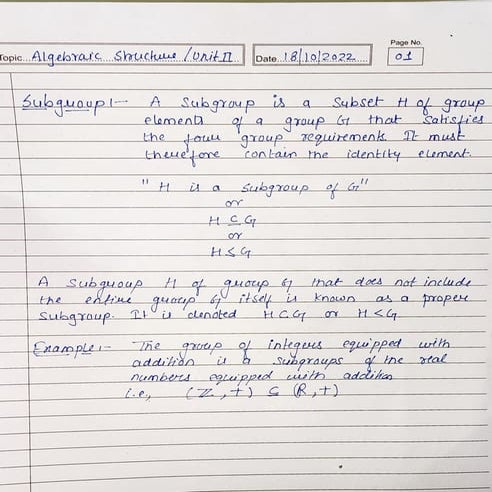 Page No.
Topic Algebraic Structure / Unit II Date 18/10/2022 01
Subgroup :- A Subgroup is a Subset H of group
elements of a group G that satisfies
the four group requirements. It must
therefore contain the identity element.
" H is a subgroup of G"
or
H ⊆ G
or
H ≤ G
A Subgroup H of group G that does not include
the entire group G itself is known as a proper
Subgroup. It is denoted H ⊂ G or H < G
Example :- The group of integers equipped with
addition is a subgroups of the real
numbers equipped with addition
i.e, (Z, +) ⊆ (R, +)